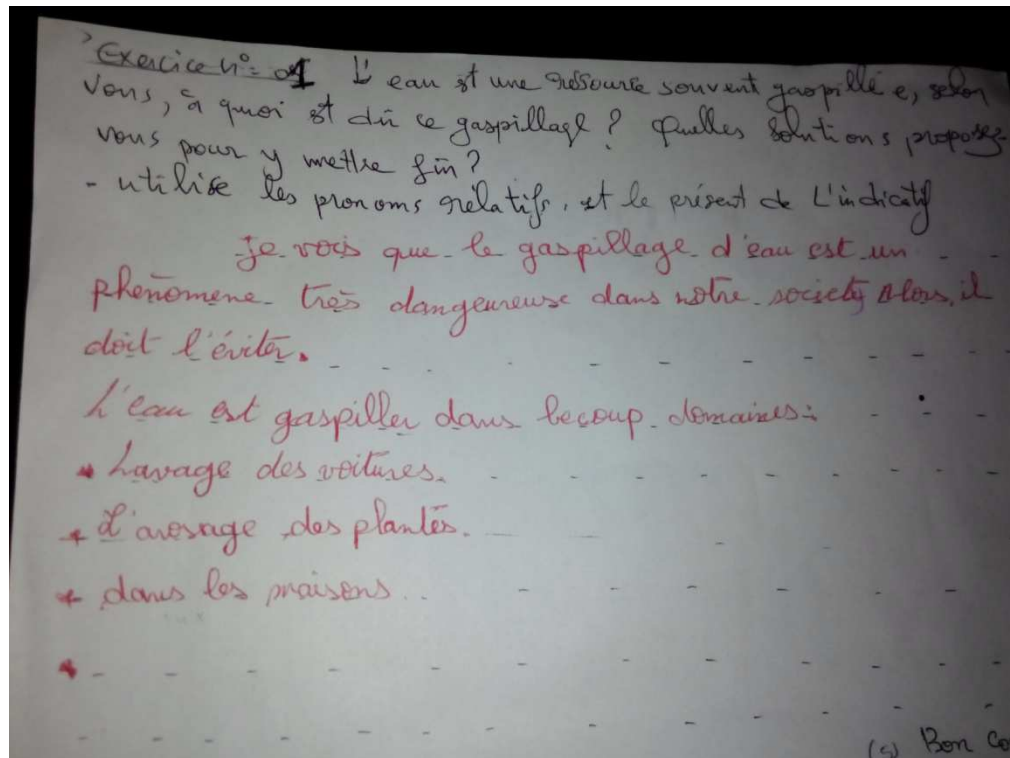 Exercice n°= 01 L'eau est une ressource souvent gaspillée, selon
vous, à quoi est dû ce gaspillage ? Quelles solutions proposez-
vous pour y mettre fin ?
- utilise les pronoms relatifs, et le présent de L'indicatif
Je vois que le gaspillage d'eau est un
phénomene très dangeureuse dans notre society Alors, il
doit l'éviter.
L'eau est gaspiller dans becoup domaines:
* Lavage des voitures.
* L'arosage des plantes.
* dans les maisons..
*
(s) Bon Co